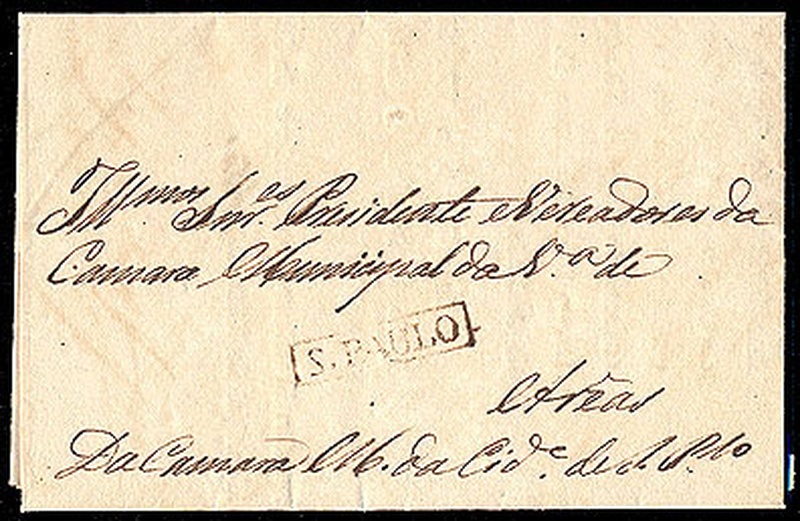 Illmos Snres. Presidente e Vereadores da
Camara Municipal da V.a de
S. PAULO
Arêas
Da Camara M. da Cide. de S. Plo